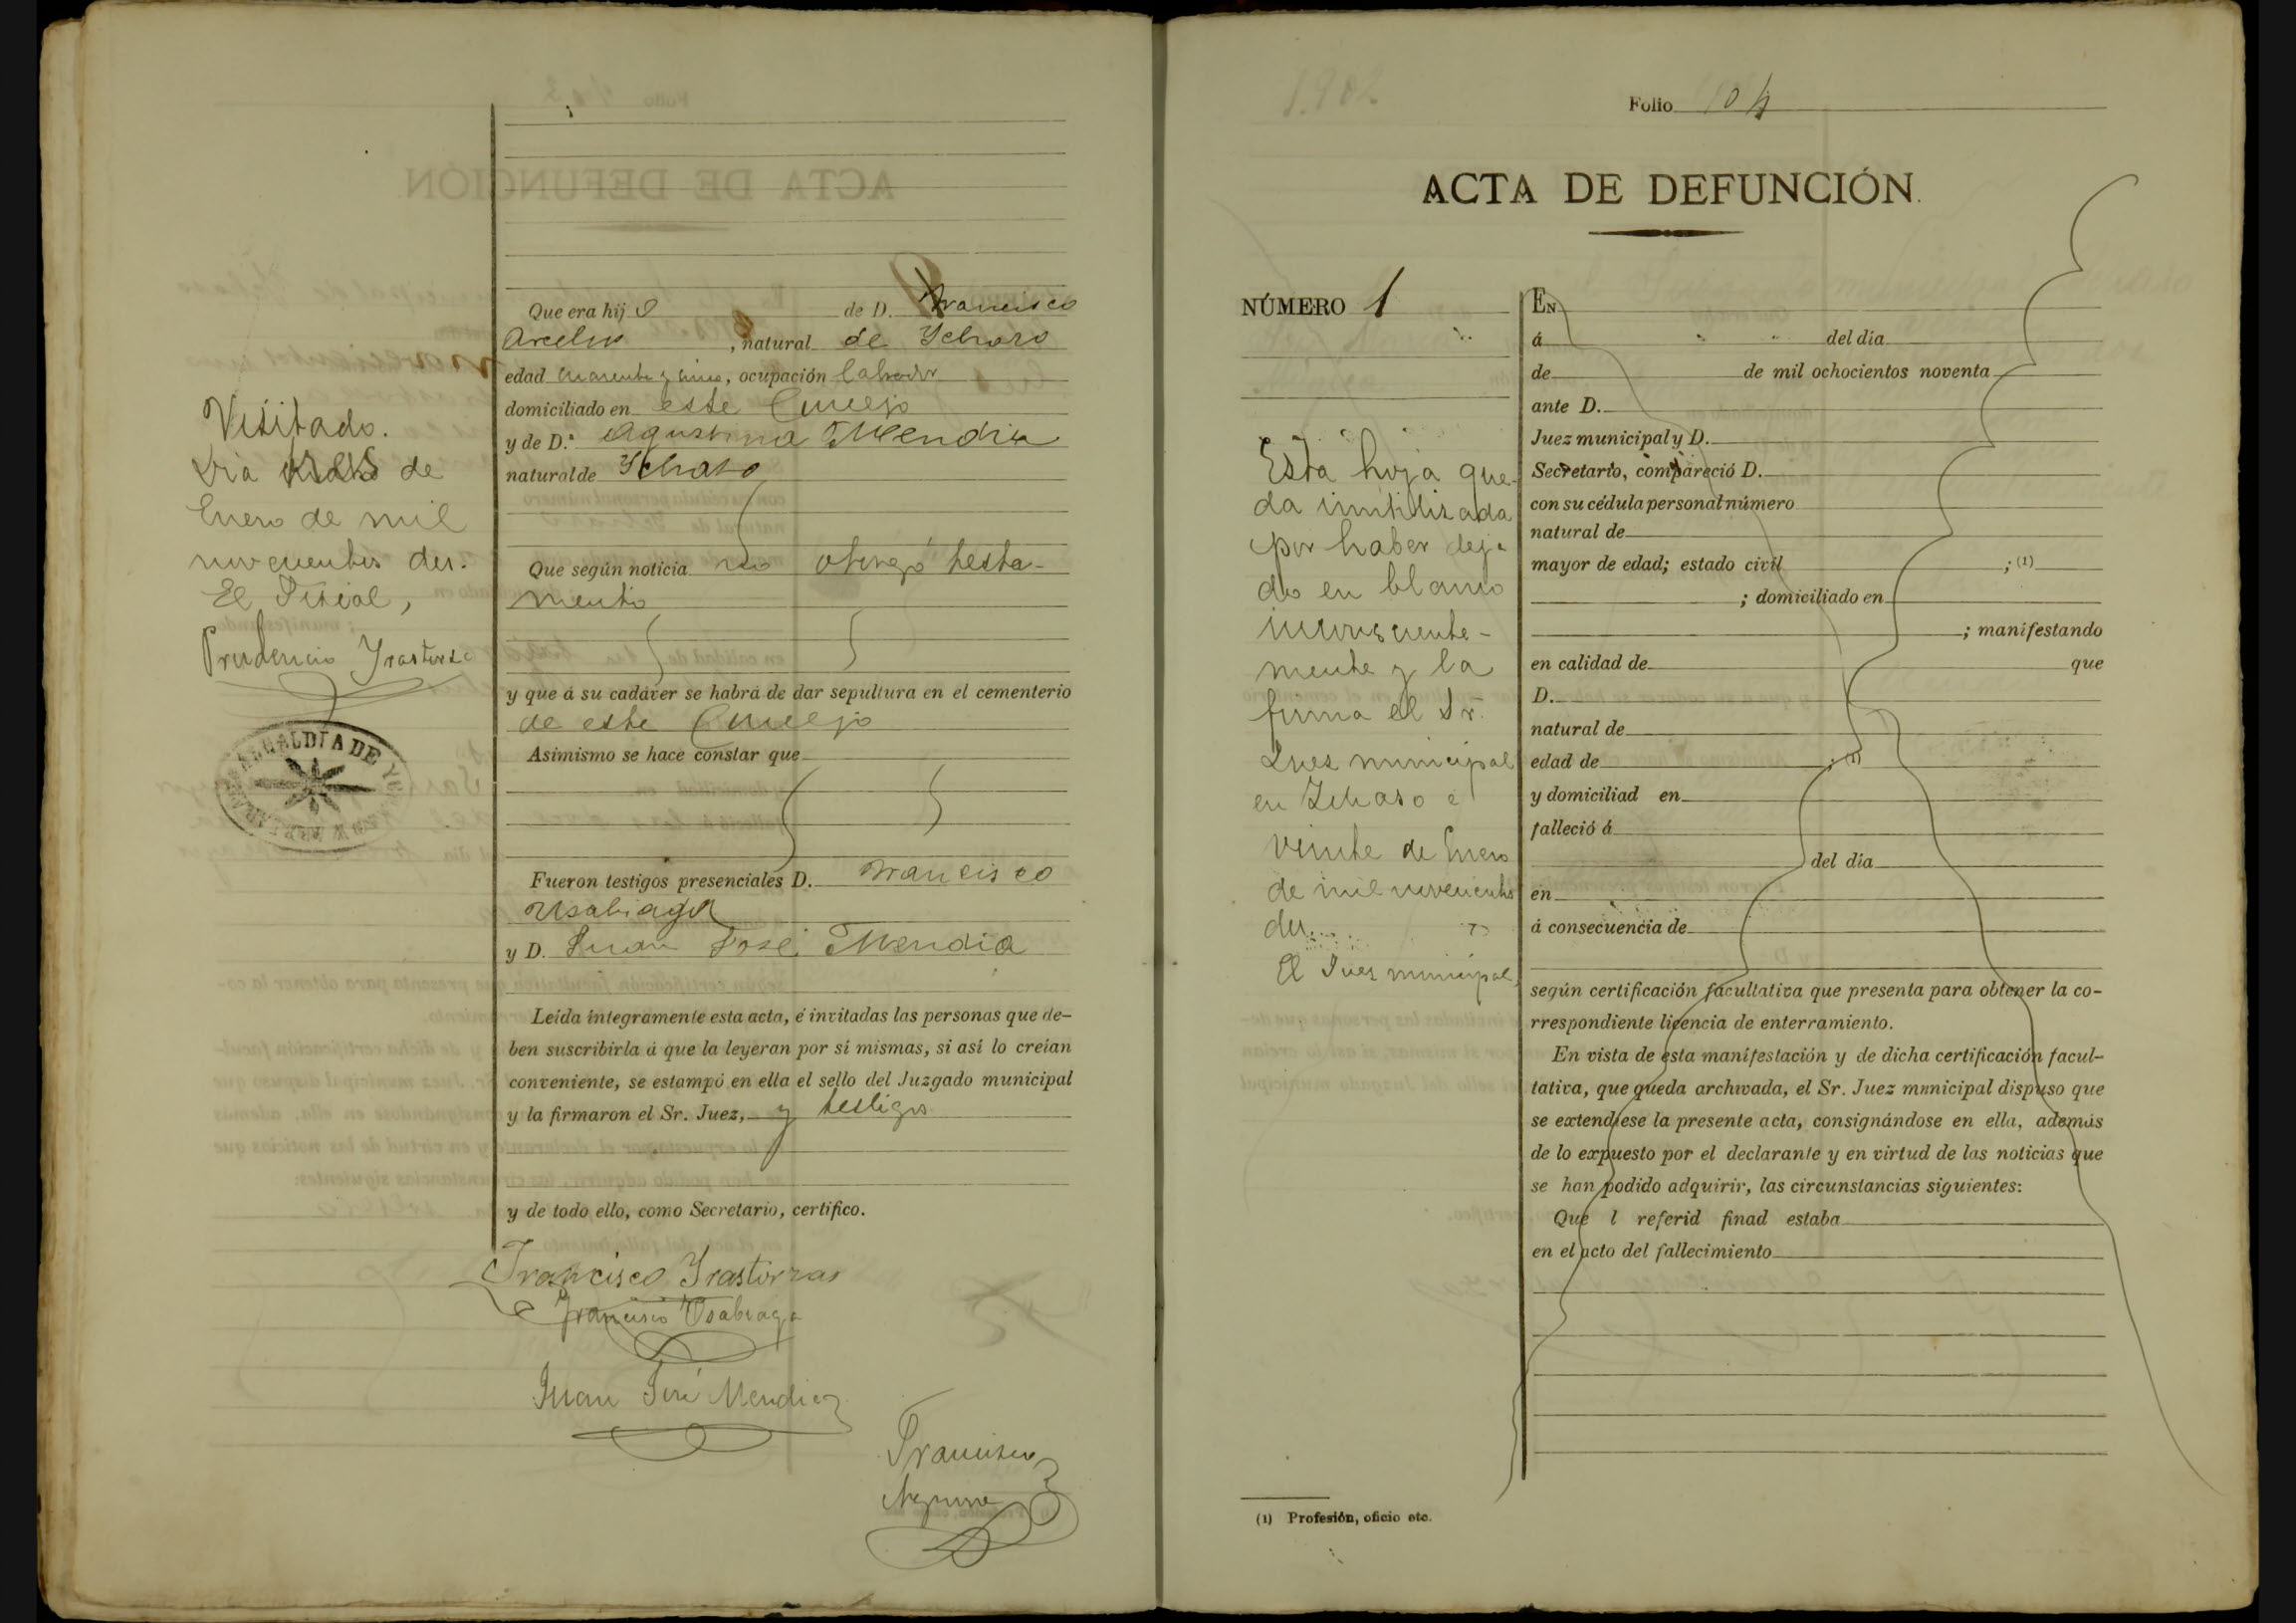 Que era hijo de D. Francisco
Arcelus, natural de Ychaso
edad cuarenta y cinco, ocupación labrador
domiciliado en este Concejo
y de D.ª Agustina Mendia
natural de Ychaso
Que según noticia no otorgó testa-
mento
y que á su cadáver se habrá de dar sepultura en el cementerio
de este Concejo
Asimismo se hace constar que
Fueron testigos presenciales D. Francisco
Usabiaga
y D. Juan José Mendia
Leída íntegramente esta acta, é invitadas las personas que de-
ben suscribirla á que la leyeran por sí mismas, si así lo creían
conveniente, se estampó en ella el sello del Juzgado municipal
y la firmaron el Sr. Juez, y testigos
y de todo ello, como Secretario, certifico.
Francisco Yrastorzas
Francisco Usabiaga
Juan José Mendia
Francisco
Visitado.
Dia de
Enero de mil
novecientos dos.
El Fiscal,
Prudencio Yrastorza
ALCALDÍA DE
1902
Folio 104
ACTA DE DEFUNCIÓN.
NÚMERO 1
Esta hoja que-
da inutilizada
por haber deja
do en blanco
inconsciente-
mente y la
firma el Sr.
Juez municipal
en Ichaso a
veinte de Enero
de mil novecientos
dos.
El Juez municipal,
EN
á del día
de de mil ochocientos noventa
ante D.
Juez municipal y D.
Secretario, compareció D.
con su cédula personal número
natural de
mayor de edad; estado civil ; (1)
; domiciliado en
; manifestando
en calidad de que
D.
natural de
edad de ; (1)
y domiciliad en
falleció á
del día
en
á consecuencia de
según certificación facultativa que presenta para obtener la co-
rrespondiente licencia de enterramiento.
En vista de esta manifestación y de dicha certificación facul-
tativa, que queda archivada, el Sr. Juez municipal dispuso que
se extendiese la presente acta, consignándose en ella, además
de lo expuesto por el declarante y en virtud de las noticias que
se han podido adquirir, las circunstancias siguientes:
Que l referid finad estaba
en el acto del fallecimiento
(1) Profesión, oficio etc.